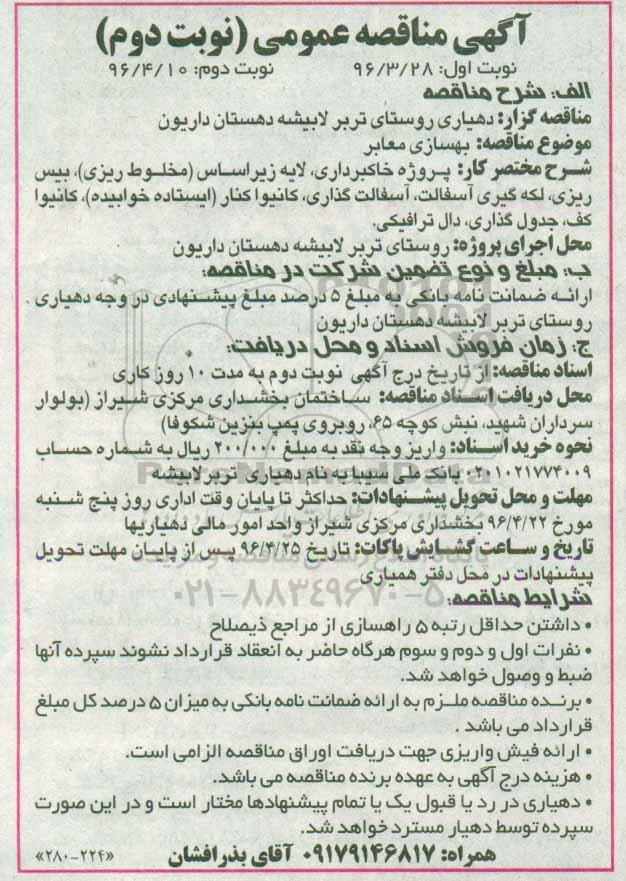 آگهی مناقصه عمومی (نوبت دوم)
نوبت اول: ۹۶/۳/۲۸ نوبت دوم: ۹۶/۴/۱۰
الف: شرح مناقصه
مناقصه گزار: دهیاری روستای تربر لابیشه دهستان داریون
موضوع مناقصه: بهسازی معابر
شرح مختصر کار: پروژه خاکبرداری، لایه زیراساس (مخلوط ریزی)، بیس
ریزی، لکه گیری آسفالت، آسفالت گذاری، کانیوا کنار (ایستاده خوابیده)، کانیوا
کف، جدول گذاری، دال ترافیکی.
محل اجرای پروژه: روستای تربر لابیشه دهستان داریون
ب: مبلغ و نوع تضمین شرکت در مناقصه:
ارائه ضمانت نامه بانکی به مبلغ ۵ درصد مبلغ پیشنهادی در وجه دهیاری
روستای تربر لابیشه دهستان داریون
ج: زمان فروش اسناد و محل دریافت:
اسناد مناقصه: از تاریخ درج آگهی نوبت دوم به مدت ۱۰ روز کاری
محل دریافت اسناد مناقصه: ساختمان بخشداری مرکزی شیراز (بولوار
سرداران شهید، نبش کوچه ۶۵، روبروی پمپ بنزین شکوفا)
نحوه خرید اسناد: واریز وجه نقد به مبلغ ۲۰۰/۰۰۰ ریال به شماره حساب
۲۰۱۰۲۱۷۷۴۰۰۹ بانک ملی سیبا به نام دهیاری تربر لابیشه
مهلت و محل تحویل پیشنهادات: حداکثر تا پایان وقت اداری روز پنج شنبه
مورخ ۹۶/۴/۲۲ بخشداری مرکزی شیراز واحد امور مالی دهیاریها
تاریخ و ساعت گشایش پاکات: تاریخ ۹۶/۴/۲۵ پس از پایان مهلت تحویل
پیشنهادات در محل دفتر همیاری
۰۲۱-۸۸۳۴۹۶۷۰-۵
شرایط مناقصه:
• داشتن حداقل رتبه ۵ راهسازی از مراجع ذیصلاح
• نفرات اول و دوم و سوم هرگاه حاضر به انعقاد قرارداد نشوند سپرده آنها
ضبط و وصول خواهد شد.
• برنده مناقصه ملزم به ارائه ضمانت نامه بانکی به میزان ۵ درصد کل مبلغ
قرارداد می باشد.
• ارائه فیش واریزی جهت دریافت اوراق مناقصه الزامی است.
• هزینه درج آگهی به عهده برنده مناقصه می باشد.
• دهیاری در رد یا قبول یک یا تمام پیشنهادها مختار است و در این صورت
سپرده توسط دهیار مسترد خواهد شد.
همراه: ۰۹۱۷۹۱۴۶۸۱۷ آقای بذرافشان «۲۸۰-۲۲۴»